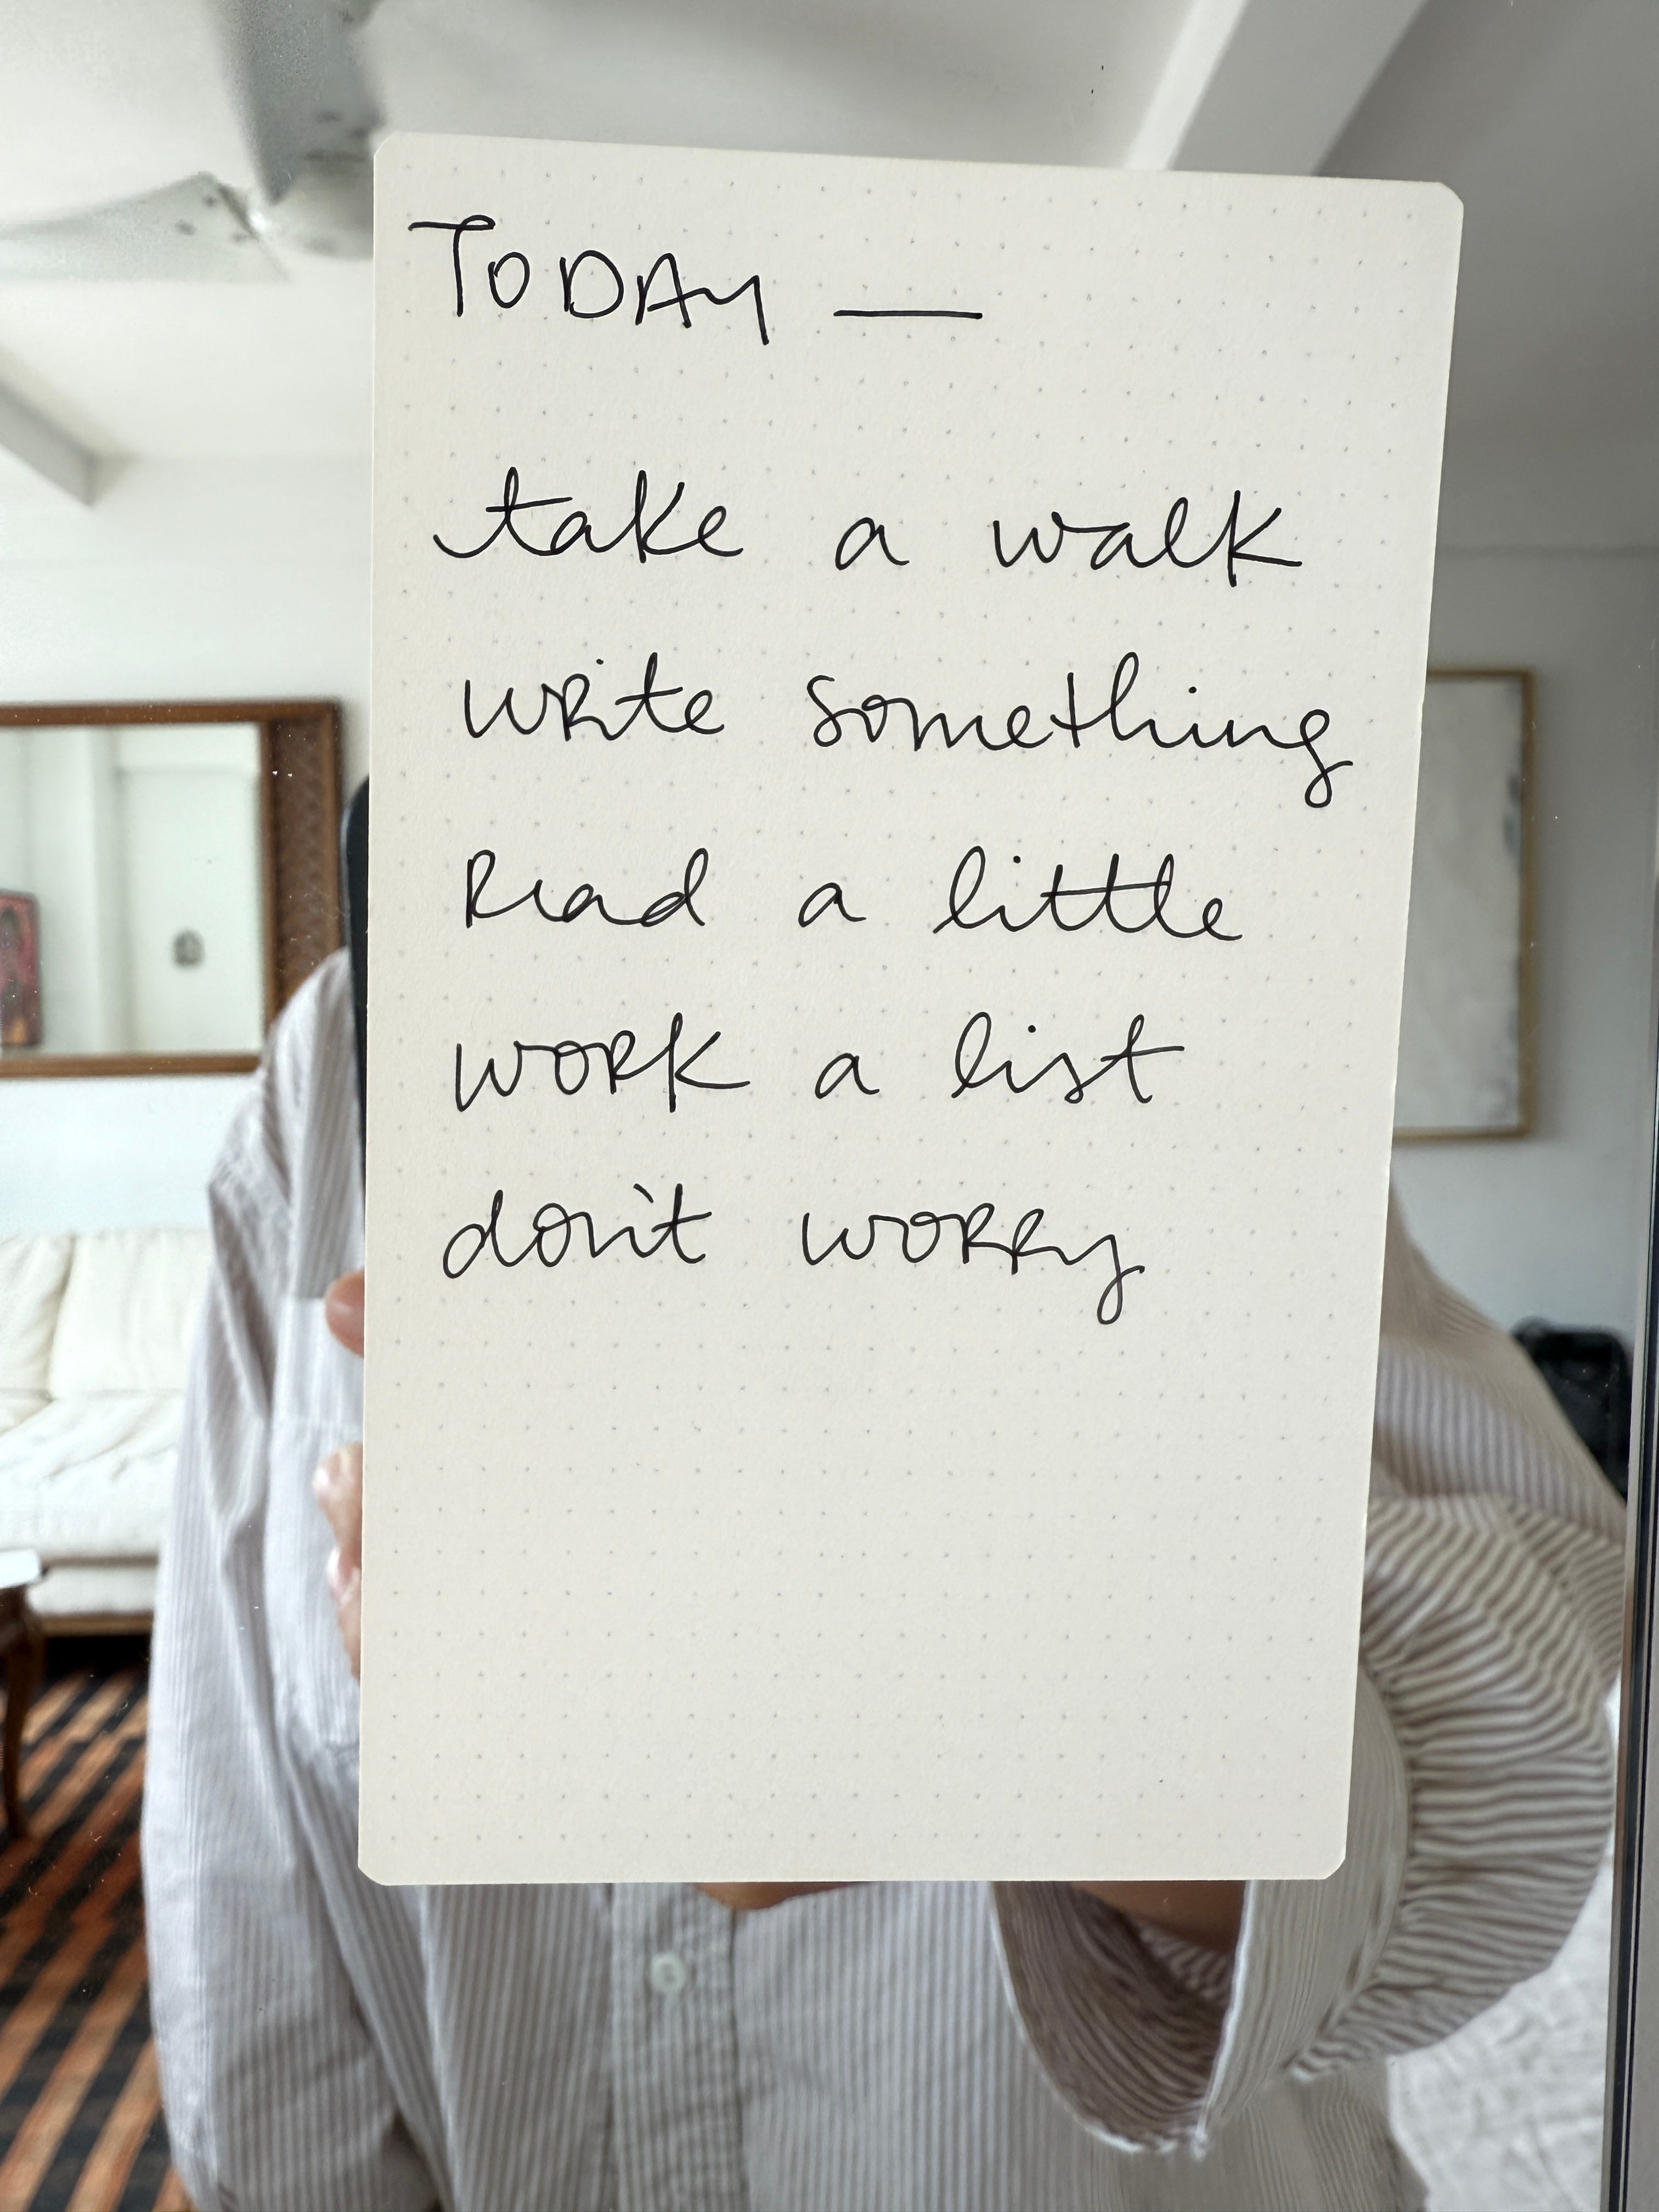 TODAY —
take a walk
write something
Read a little
work a list
don't worry